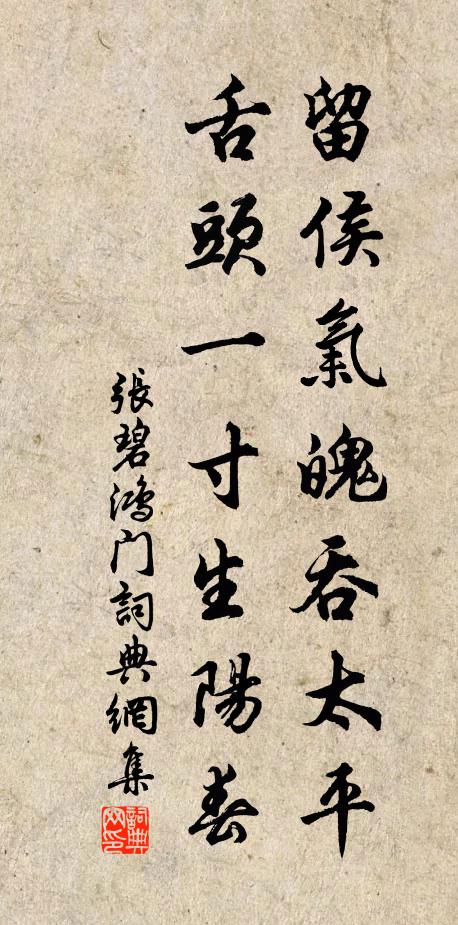 留侯氣魄吞太平
舌頭一寸生陽春
張碧鴻门詞典網集
詞典网印